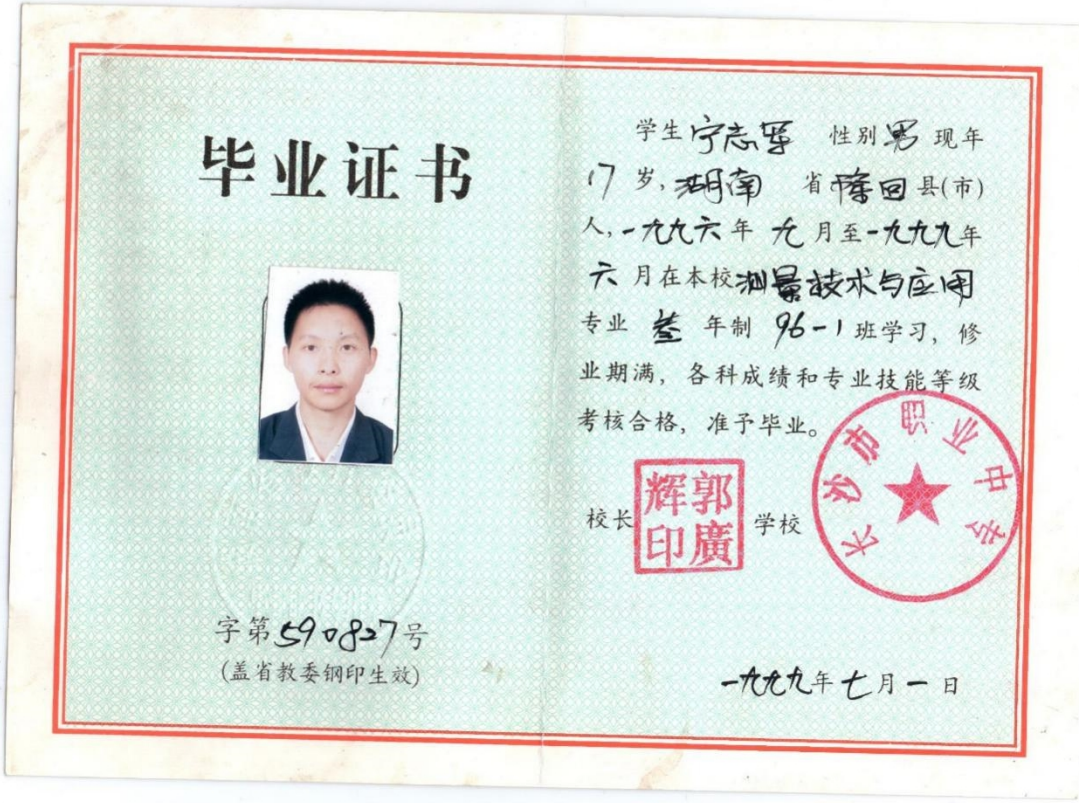 毕业证书
字第590827号
(盖省教委钢印生效)
学生宁志军 性别男现年
17岁,湖南 省隆回县(市)
人,一九九六年 九月至一九九九年
六月在本校测量技术与应用
专业 叁 年制 96-1 班学习,修
业期满,各科成绩和专业技能等级
考核合格,准予毕业。
校长 郭廣辉印 学校
长沙市 业中专
一九九九年七月一日